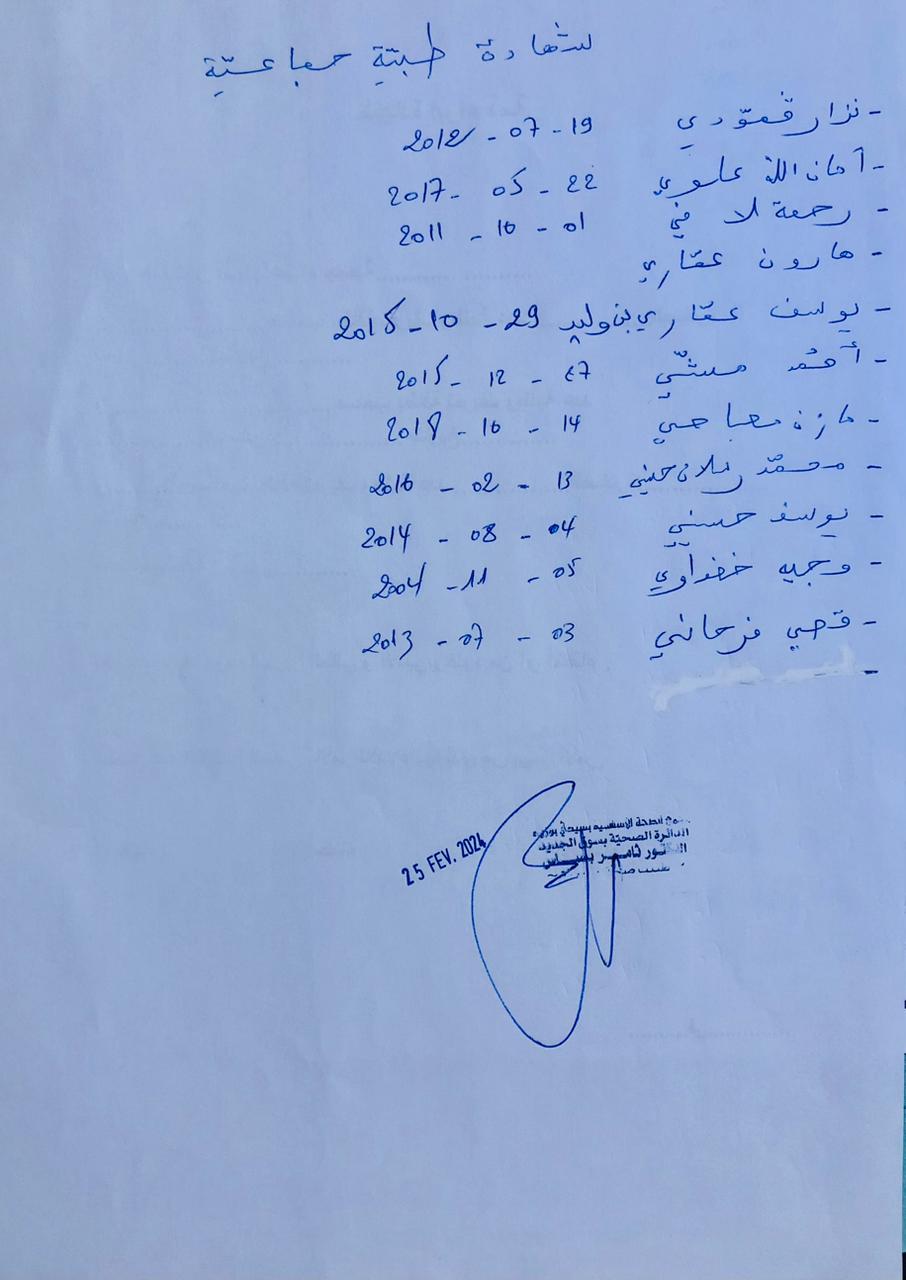 شهادة طبيّة جماعيّة
- نزار قمّودي 19 - 07 - 2012
- أمان الله علوي 22 - 05 - 2017
- رحمة لافي 01 - 10 - 2011
- هارون عمّاري
- يوسف عمّاري بن وليد 29 - 10 - 2015
- أحمد مشّي 27 - 12 - 2015
- مازن مصباحي 14 - 10 - 2018
- محمّد حسيني 13 - 02 - 2016
- يوسف حسني 04 - 08 - 2014
- وجيه خضراوي 05 - 11 - 2004
- قصي فرحاني 03 - 07 - 2013
-
25 FEV. 2024
الصحة الأساسية بسيدي بوزيد
الدائرة الصحيّة بسوق الجديد
ثامر